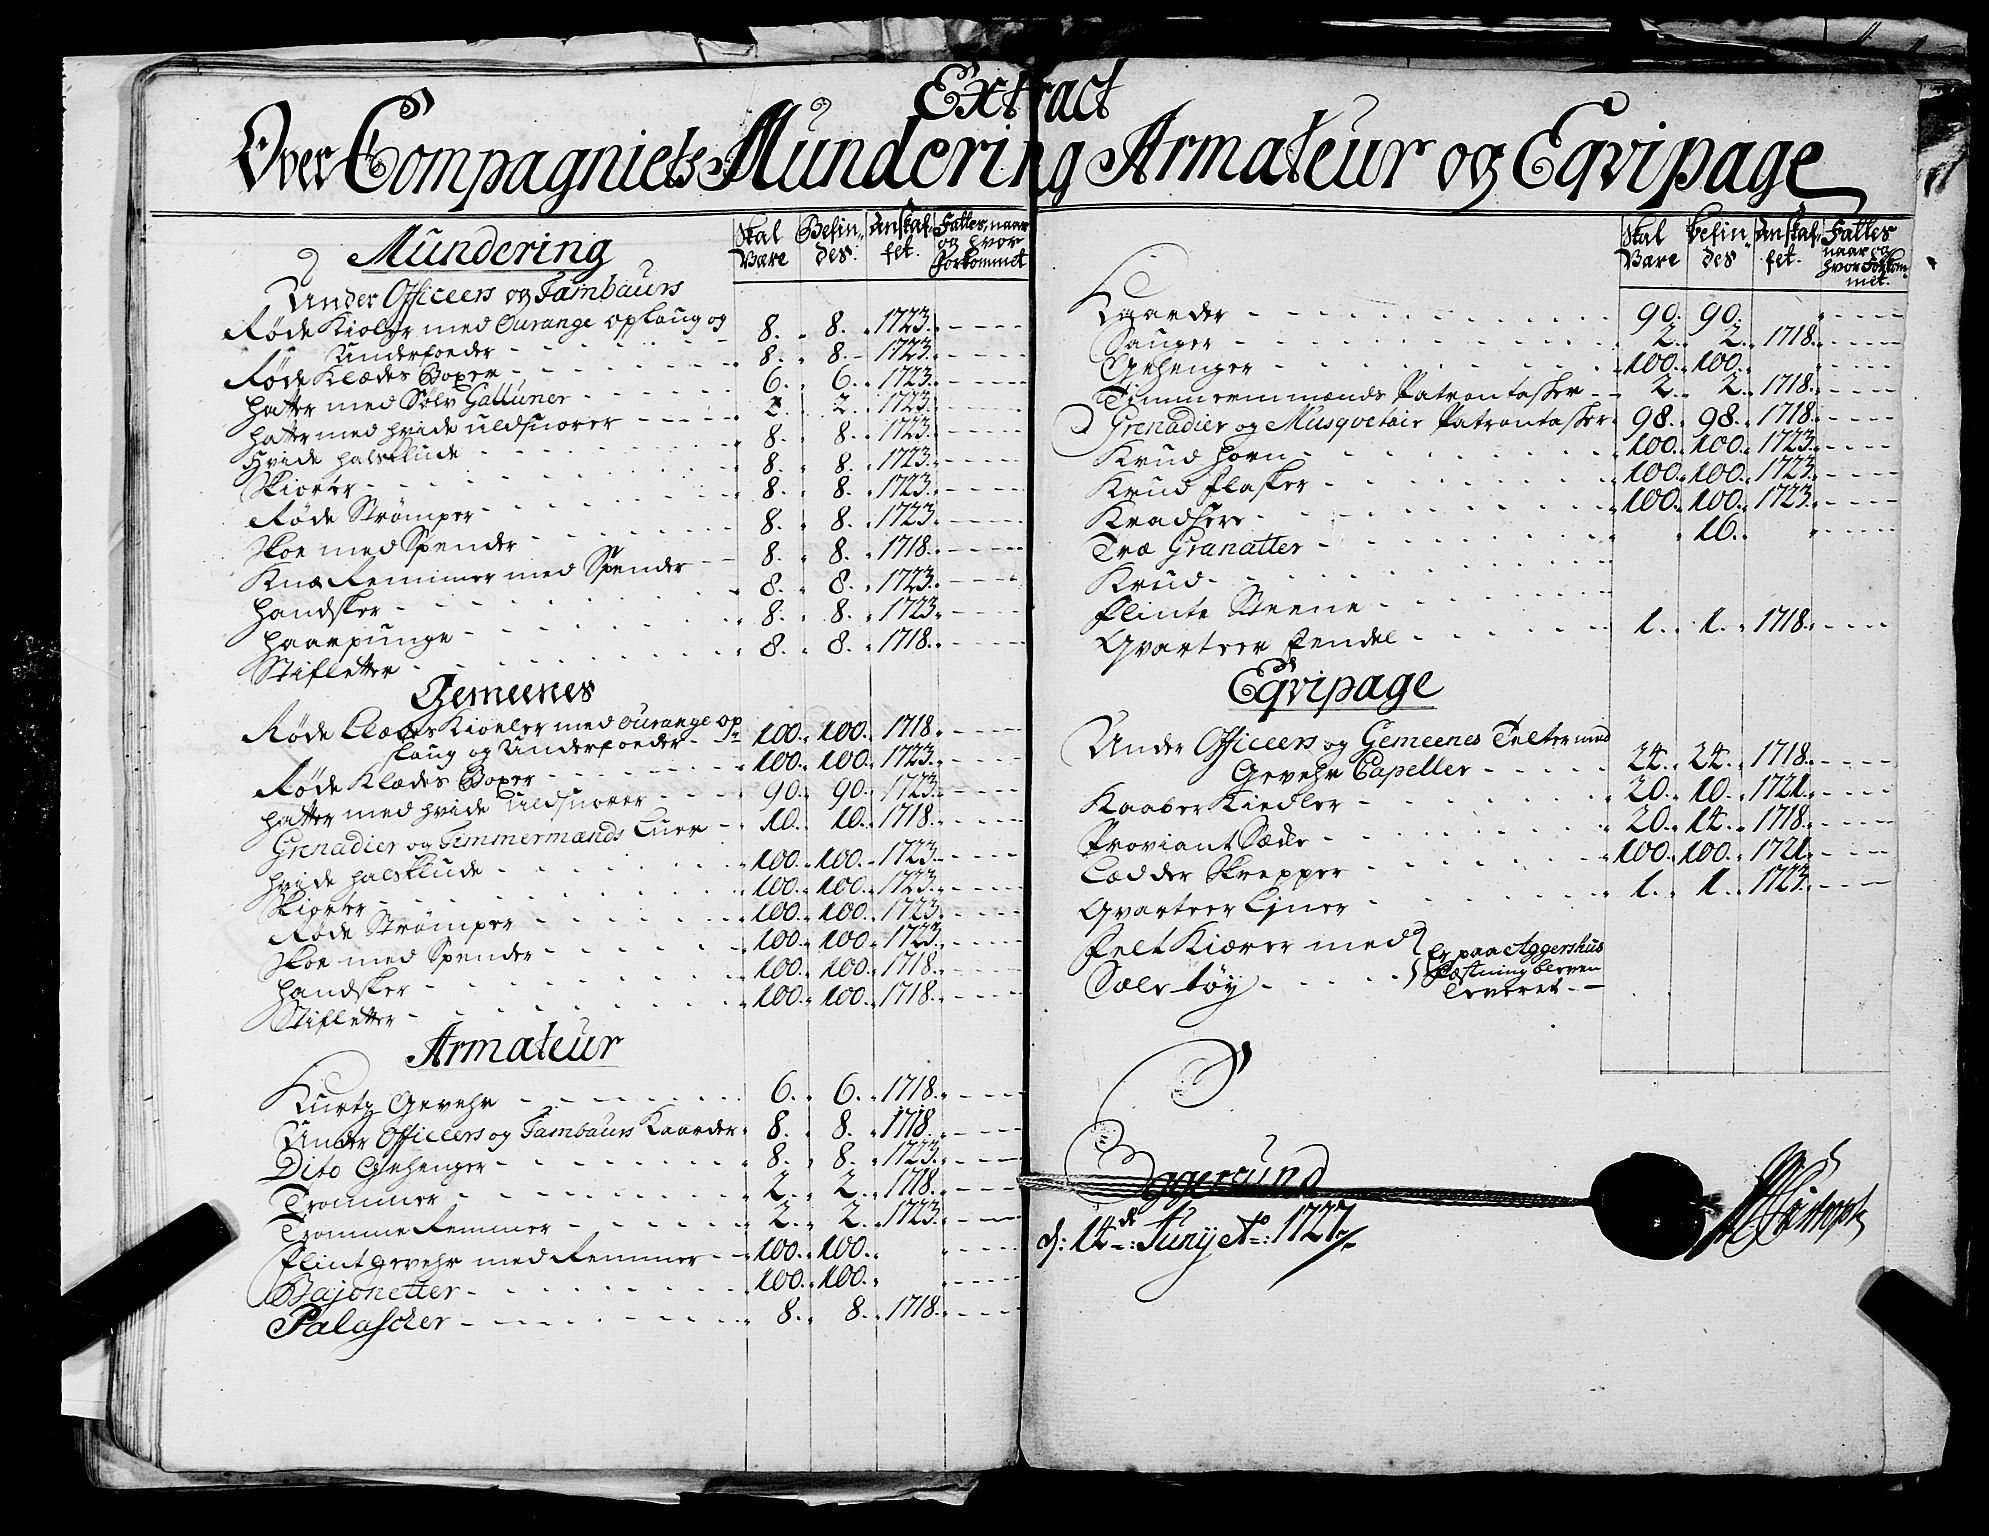 Extract
Over Compagniets Mundering Armateur og Eqvipage
Skal Være Befin„des. Anskaf„fet. Fattes, naar og hvor forkommet
Mundering
Under Officeers og Tambours
Røde Kioler med Ourange opslaug og
Underfoeder 8. 8. 1723.
Røde Klædes Boxer 8. 8. 1723.
Hatter med Sølv Galluner 6. 6. 1723.
Hatter med hvide uldsnorer 2. 2. 1723.
Hvide halsklude 8. 8. 1723.
Skiorter 8. 8. 1723.
Røde Strømper 8. 8. 1723.
Skoe med Spender 8. 8. 1723.
Knæ Remmer med Spender 8. 8. 1718.
Handsker 8. 8. 1723.
Haarpunge 8. 8. 1723.
Stifletter 8. 8. 1718.
Gemeenes
Røde Clædes Kioeler med ourange op„
slaug og Underfoeder 100. 100. 1718.
Røde Klædes Boxer 100. 100. 1723.
Hatter med hvide Uldsnorer 90. 90. 1723.
Grenadier og Timmermænds Luer 10. 10. 1718.
Hvide halsklude 100. 100. 1723.
Skiorter 100. 100. 1723.
Røde Strømper 100. 100. 1723.
Skoe med Spender 100. 100. 1723.
Handsker 100. 100. 1718.
Stifletter 100. 100. 1718.
Armateur
Kurtz Gevehr 6. 6. 1718.
Under Officeers og Tambours Kaarder 8. 8. 1718.
Dito Gehenger 8. 8. 1723.
Trommer 2. 2. 1718.
Tromme Remmer 2. 2. 1723.
Flintgevehr med Remmer 100. 100.
Bajonetter 100. 100.
Palascher 8. 8. 1718.
Skal Være Befin„des Anskaf„fet. Fattes naar og hvor forkom„met.
Kaarder 90. 90.
Sauger 2. 2. 1718.
Gehenger 100. 100.
Timmermænds Patrontasker 2. 2. 1718.
Grenadier og Musqvetair Patrontasker 98. 98. 1718.
Krud horn 100. 100. 1723.
Krud flasker 100. 100. 1723.
Kradsere 100. 100. 1723.
Træ Granatter 16.
Krud
Flinte Steene
Qvarteer Fendel 1. 1. 1718.
Eqvipage
Under Officeers og Gemeenes Telter med
Gevehr Capeller 24. 24. 1718.
Kaaber Kiedler 20. 10. 1721.
Proviant Sæcke 20. 14. 1718.
Lædder Skrepper 100. 100. 1721.
Qvarteer Liner 1. 1. 1723.
Felt Kiærer med
Sæle tøy
Er paa Aggershus
Fæstning bleven
leveret
Eggersund
d: 14de Junij Ao: 1727